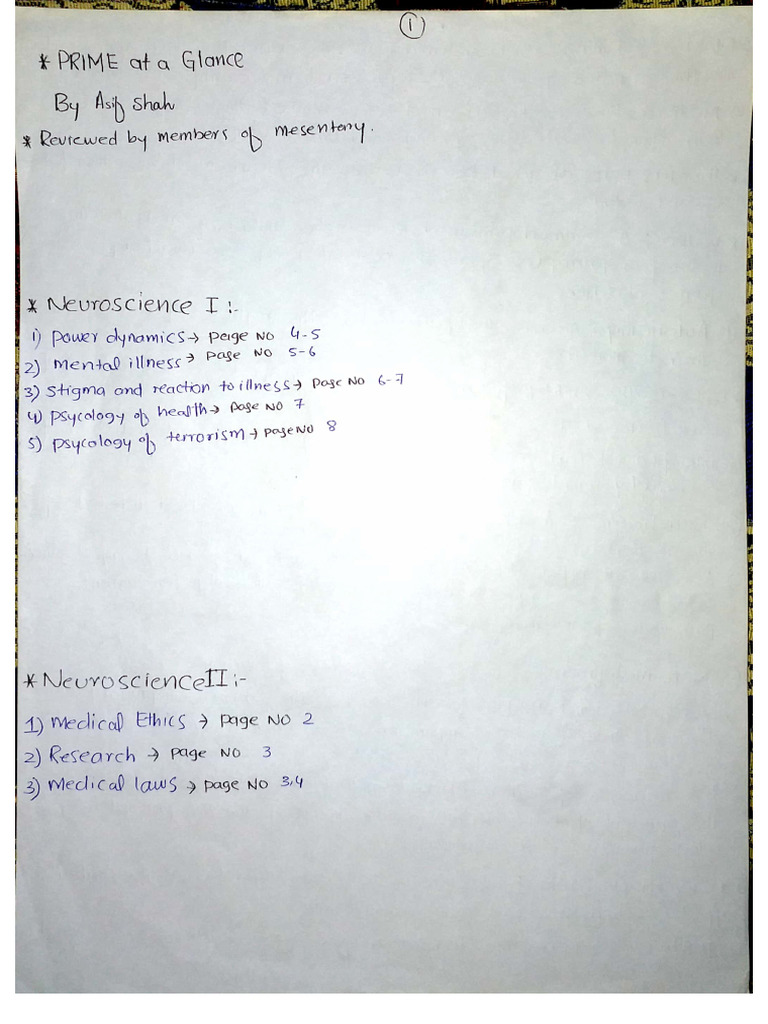 ①
* PRIME at a Glance
By Asif Shah
* Reviewed by members of mesentery.
* Neuroscience I :-
1) power dynamics → page No 4-5
2) mental illness → page No 5-6
3) stigma and reaction to illness → page No 6-7
4) psycology of health → page No 7
5) psycology of terrorism → page No 8
* Neuroscience II :-
1) Medical Ethics → page No 2
2) Research → page No 3
3) Medical laws → page No 3,4